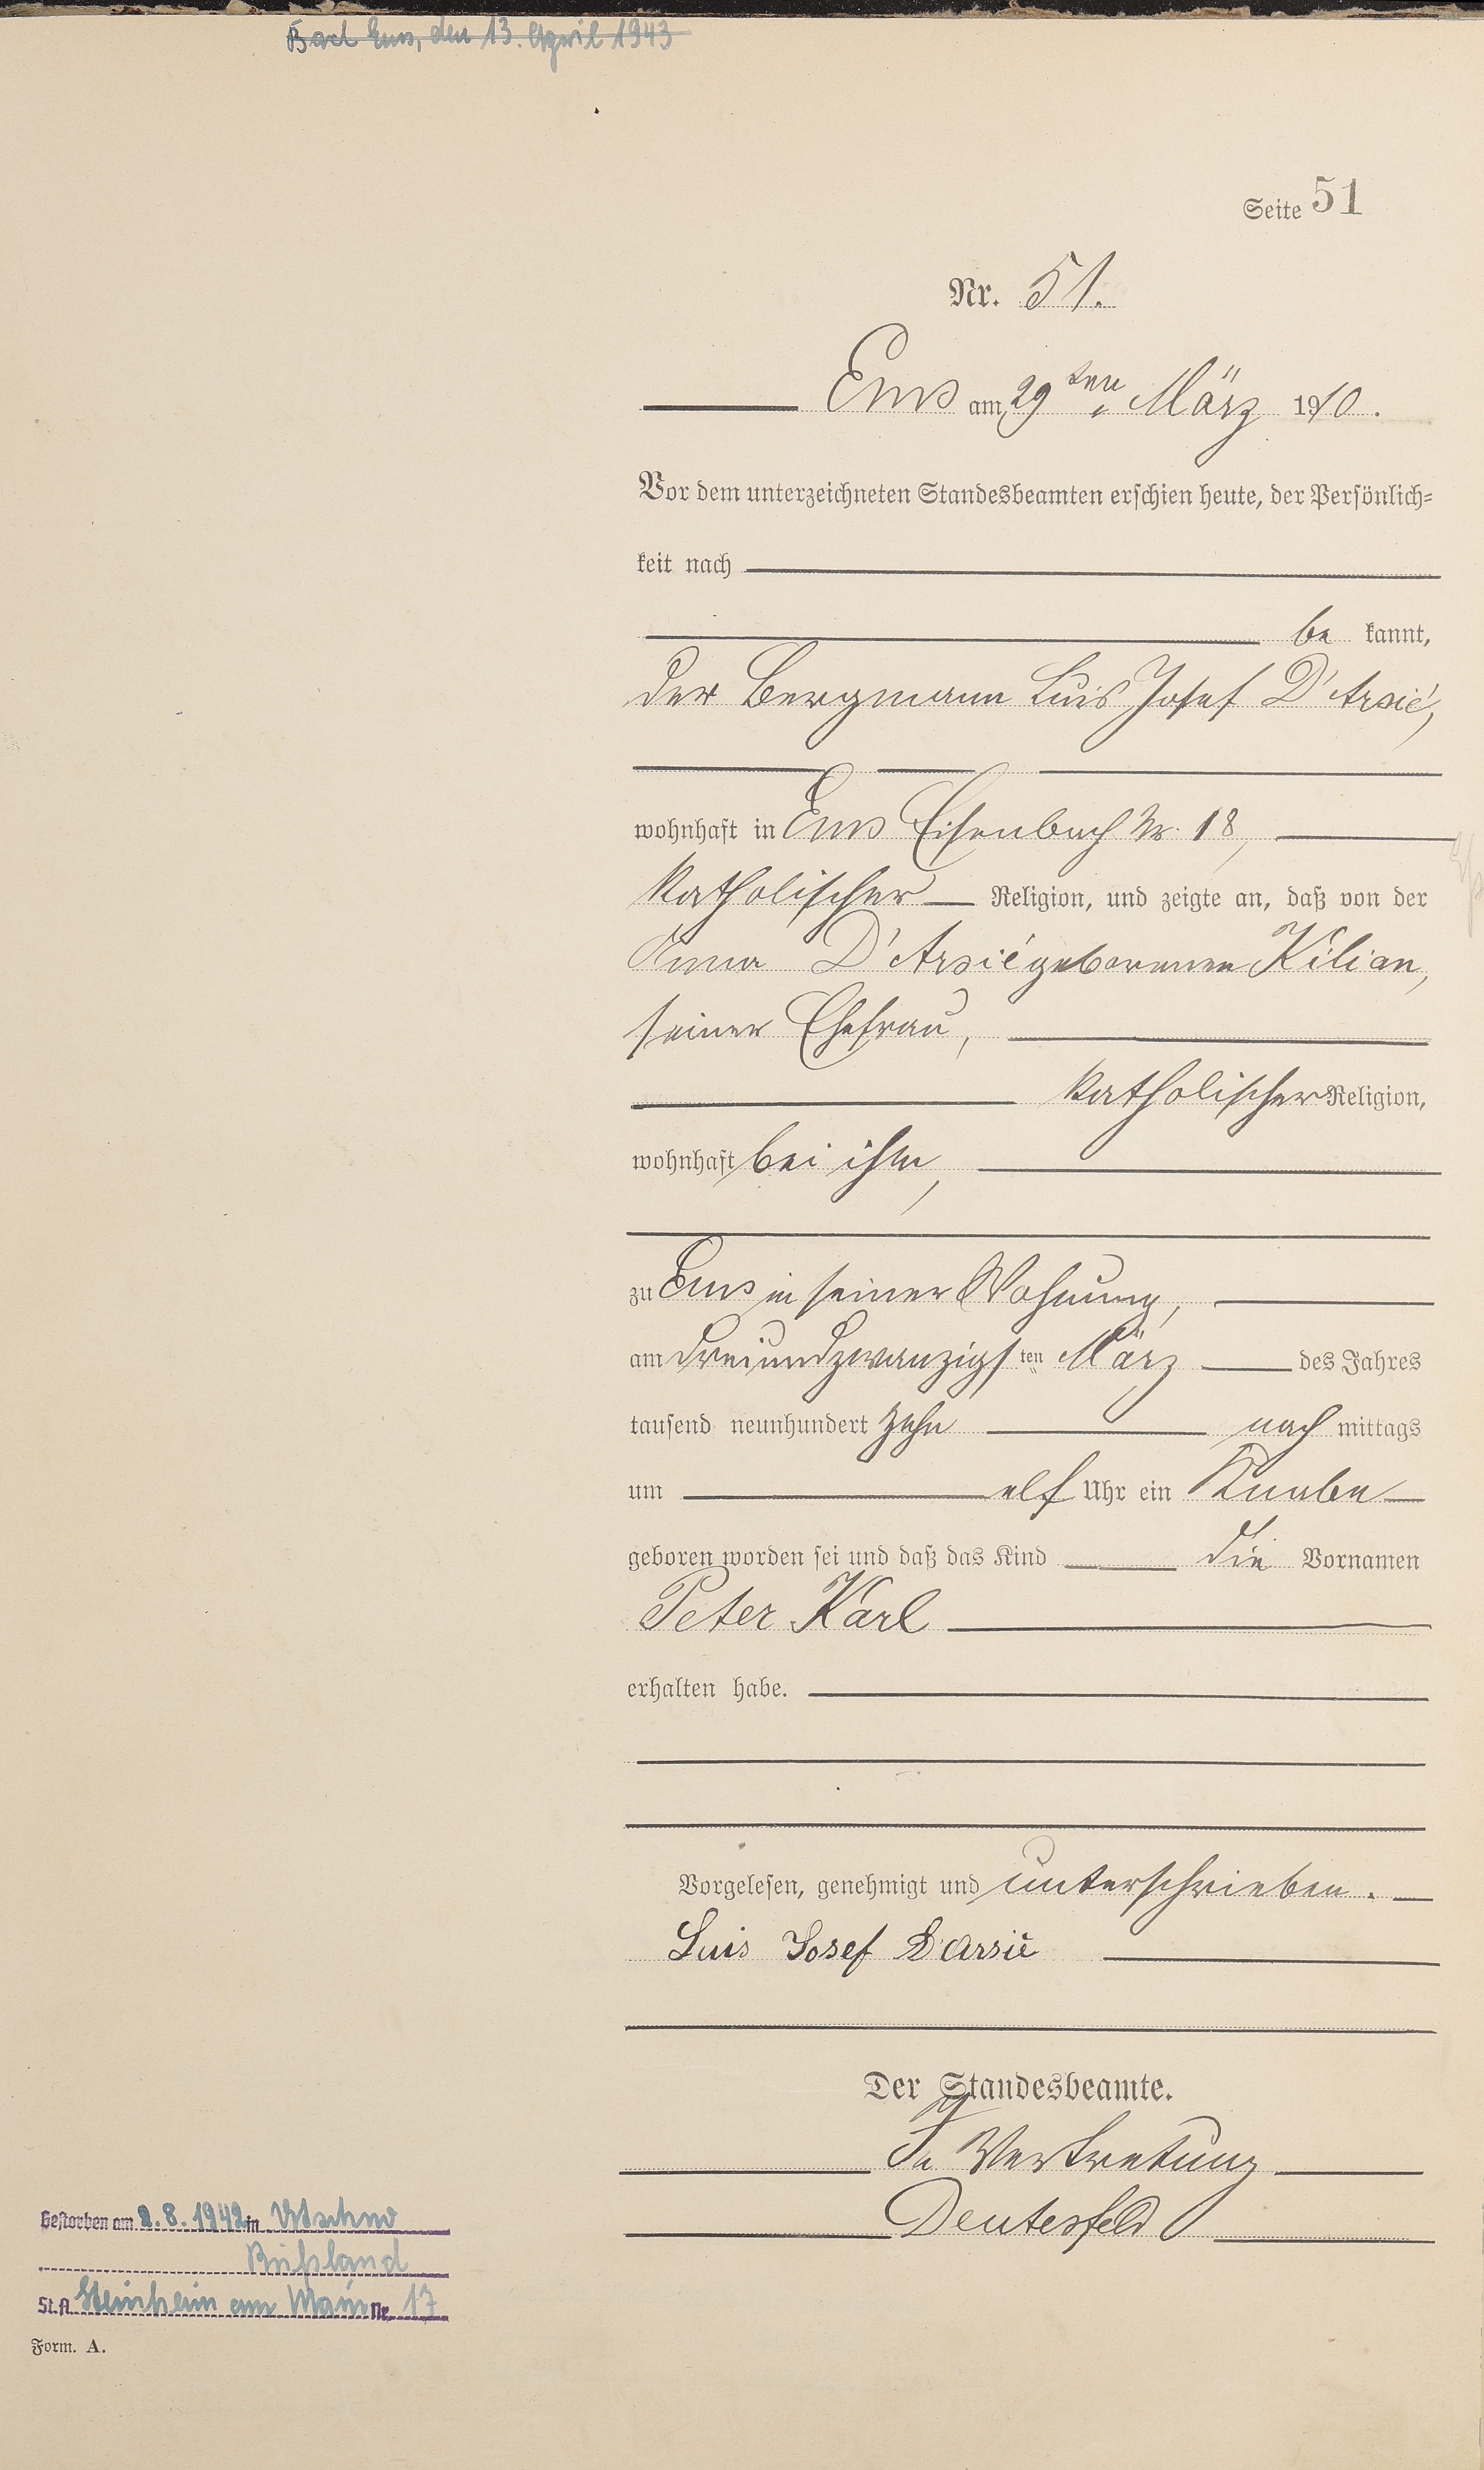 Bad Ems, den 13. April 1943
Seite 51
Nr. 51.
Ems am 29ten März 1910.
Vor dem unterzeichneten Standesbeamten erschien heute, der Persönlich=
keit nach
be kannt,
der Bergmann Luis Josef D'Arsié,
wohnhaft in Ems Eisenbach Nr. 18,
katholischer Religion, und zeigte an, daß von der
Anna D'Arsié geborenen Kilian,
seiner Ehefrau,
katholischer Religion,
wohnhaft bei ihm,
zu Ems in seiner Wohnung,
am dreiundzwanzigsten März des Jahres
tausend neunhundert zehn nach mittags
um elf Uhr ein Knabe
geboren worden sei und daß das Kind die Vornamen
Peter Karl
erhalten habe.
Vorgelesen, genehmigt und unterschrieben.
Luis Josef D'Arsié
Der Standesbeamte.
In Vertretung
Deutesfeld
Gestorben am 2.8.1942 in
Rußland
St.A. Steinheim am Main Nr. 17
Form. A.